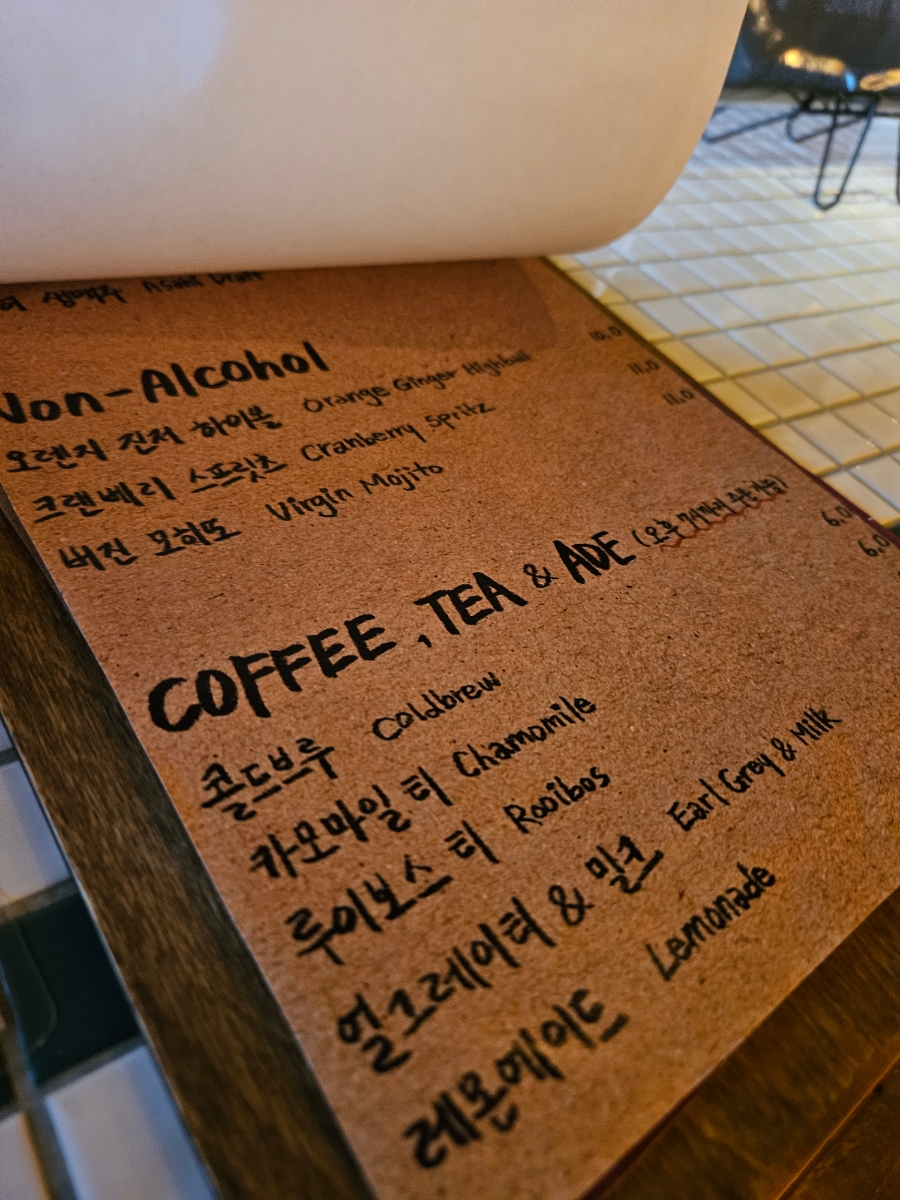 생맥주 Asahi Draft
Non-Alcohol
오렌지 진저 하이볼 Orange Ginger Highball 10.0
크랜베리 스프릿츠 Cranberry Spritz 11.0
버진 모히또 Virgin Mojito 11.0
COFFEE, TEA & ADE (오후 7시까지 주문가능)
콜드브루 Coldbrew 6.0
카모마일 티 Chamomile 6.0
루이보스 티 Rooibos
얼그레이티 & 밀크 Earl Grey & Milk
레몬에이드 Lemonade